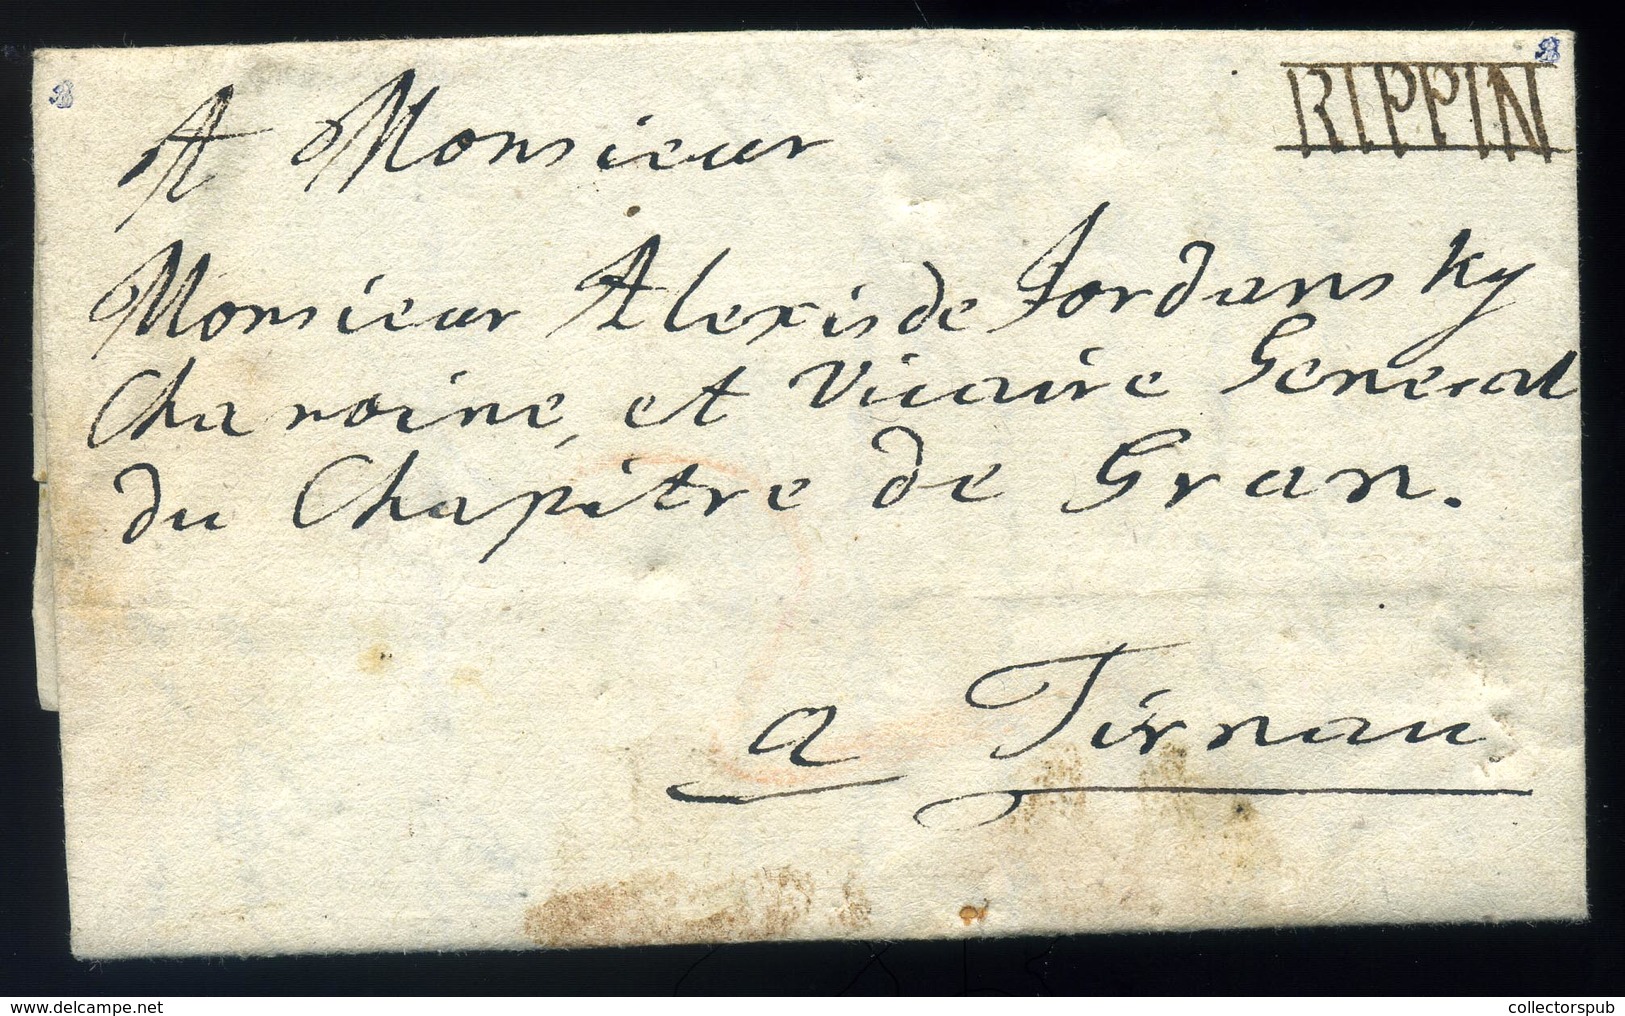 RIPPIN
A Monsieur
Monsieur Alexis de Jordansky
Chanoine, et Vicaire General
du Chapitre de Gran.
a Tirnau.
collectorspub